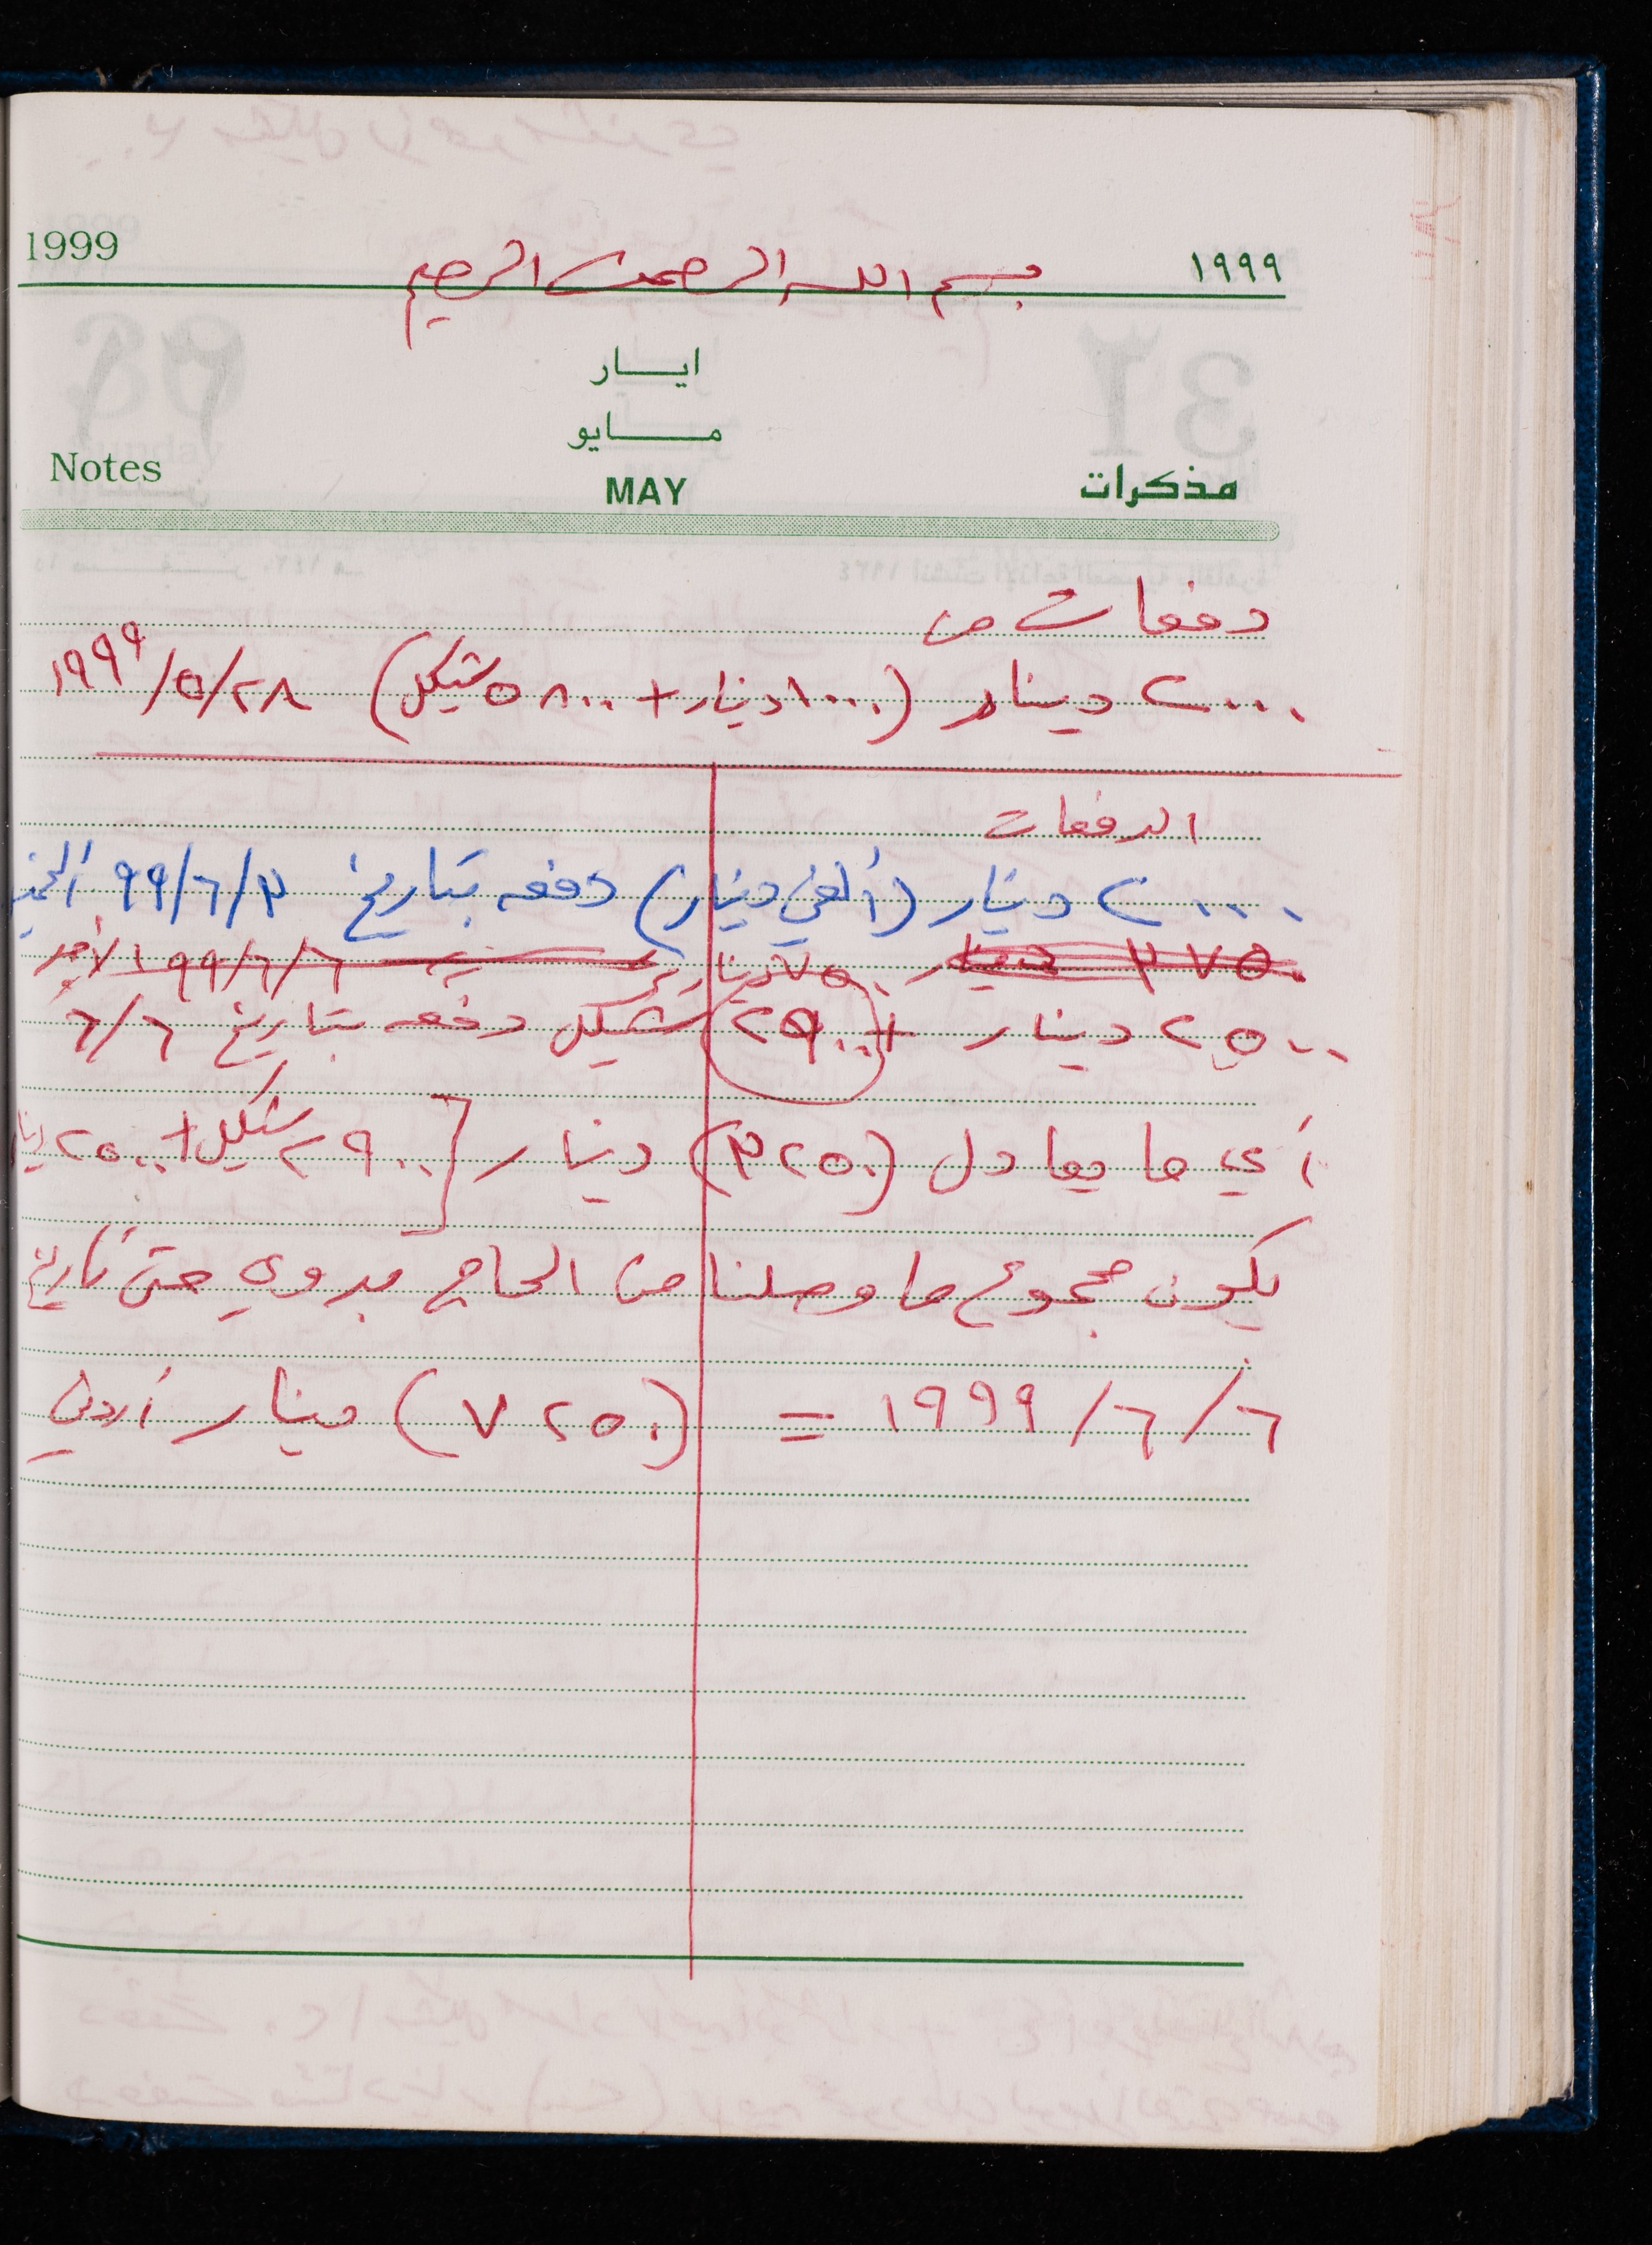 1999 بسم الله الرحمن الرحيم ١٩٩٩
ايــار
مــايو
Notes MAY مذكرات
دفعات من
٢٠٠٠ دينار (١٠٠٠ دينار + ٥٨٠٠ شيكل) ١٩٩٩/٥/٢٨
الدفعات
٢٠٠٠ دينار (ألفي دينار) دفعه بتاريخ ٩٩/٦/٣
٣٧٥٠ دينار ٧٥٠ دينار ١٩٩/٦/٦ الأحد
٢٥٠٠ دينار + (٢٩٠٠) شيكل دفعه بتاريخ ٦/٦
أي ما يعادل (٣٢٥٠) دينار [٢٩٠٠ شيكل + ٢٥٠٠ دينار
يكون مجموع ما وصلنا من الحاج بدوي حتى تاريخ
١٩٩٩/٦/٦ = (٧٢٥٠) دينار أردني